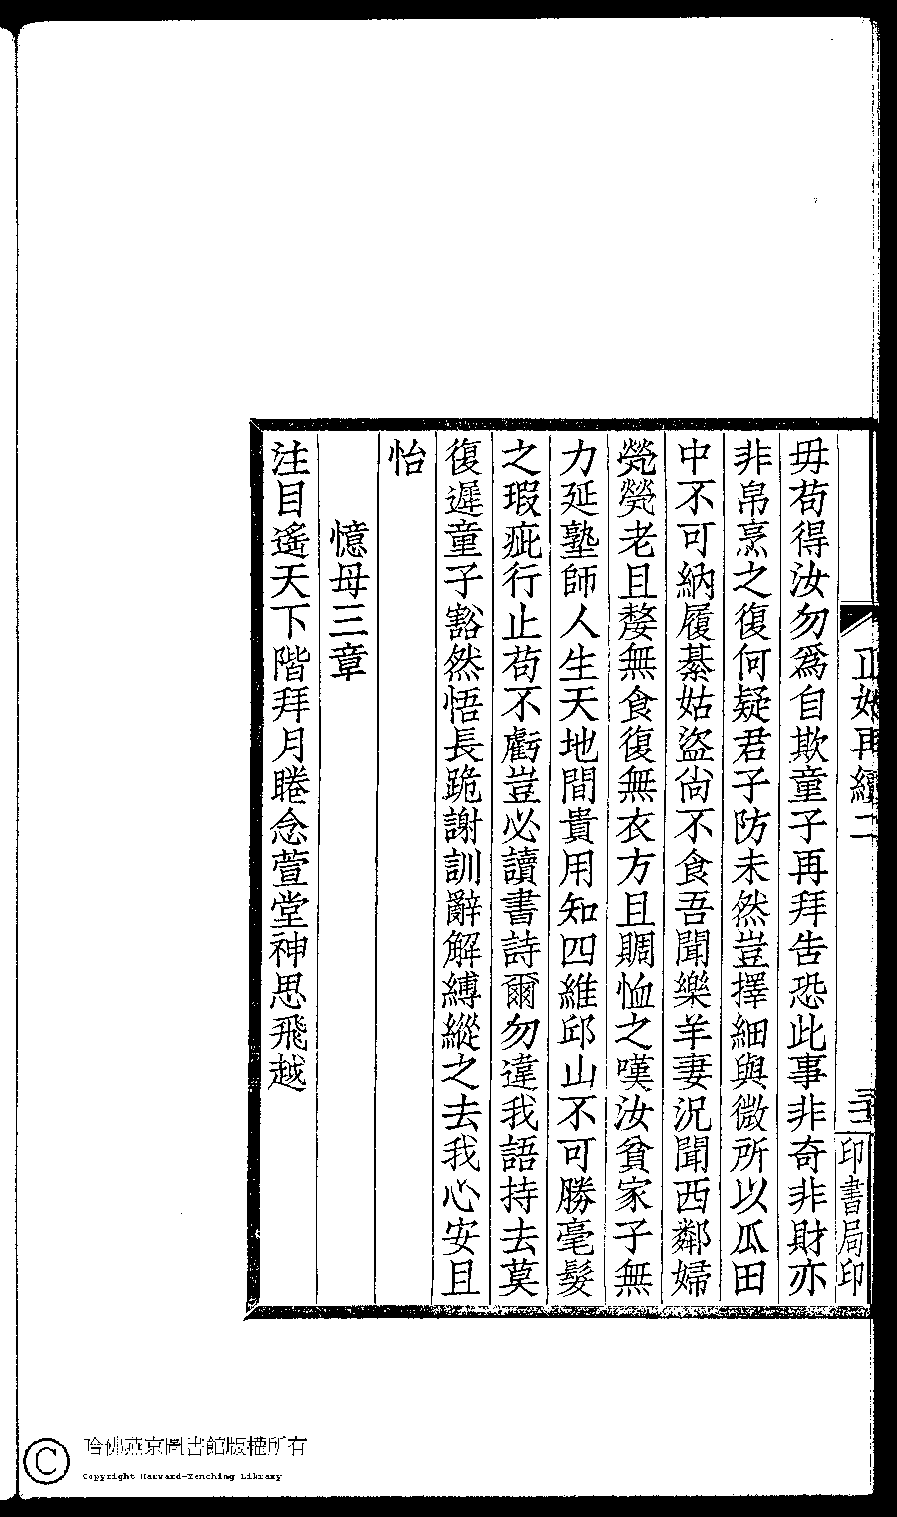 毋苟得汝勿為自欺童子再拜告恐此事非奇非財亦
非帛烹之復何疑君子防未然豈擇細與微所以瓜田
中不可納履綦姑盜尙不食吾聞樂羊妻況聞西鄰婦
煢煢老且嫠無食復無衣方且賙恤之嘆汝貧家子無
力延塾師人生天地間貴用知四維邱山不可勝毫髮
之瑕疵行止苟不虧豈必讀書詩爾勿違我語持去莫
復遲童子豁然悟長跪謝訓辭解縛縱之去我心安且
怡
憶母三章
注目遙天下階拜月睠念萱堂神思飛越
正始再續二
印書局印
哈佛燕京圖書館版權所有
Copyright Harvard-Yenching Library